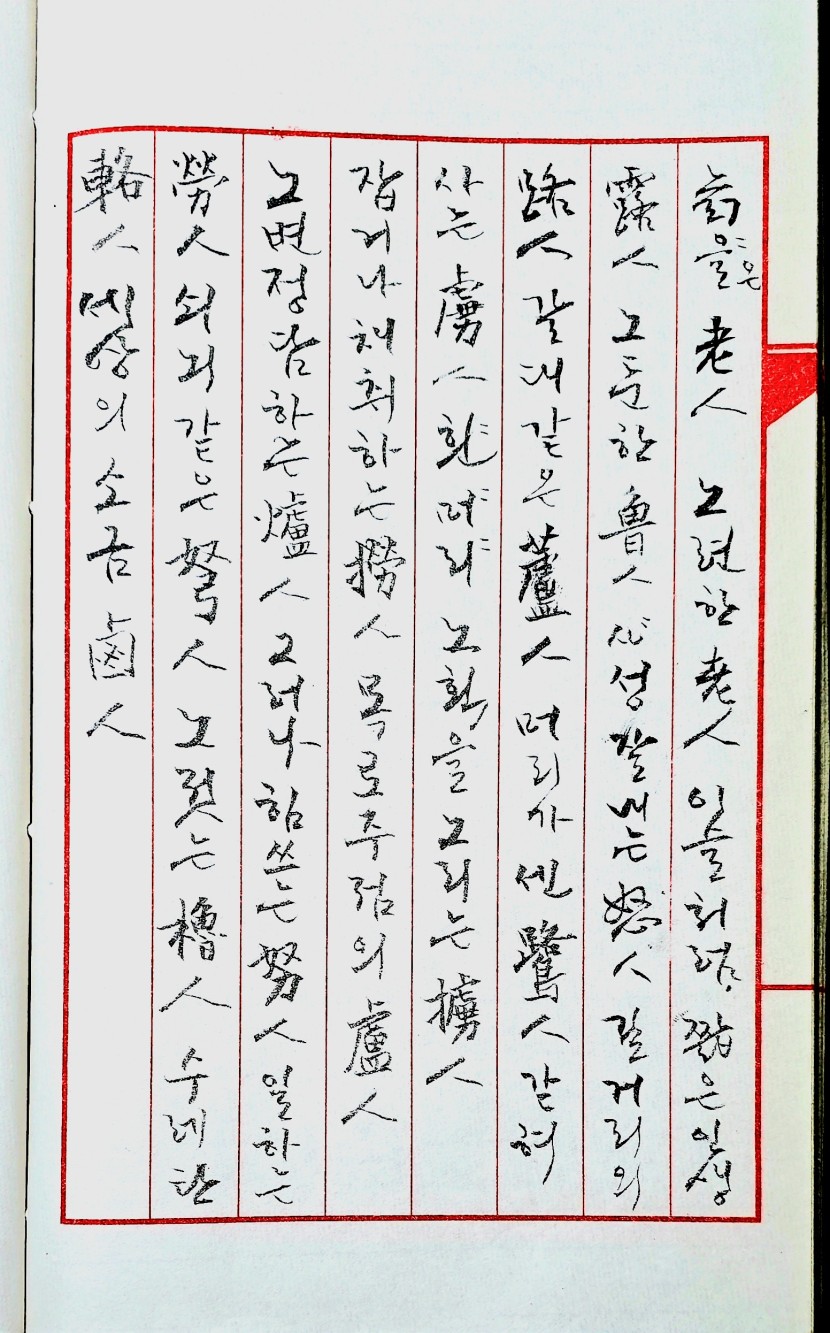 늙은 老人 노련한 老人 이슬처럼 짧은 인생
露人 노둔한 魯人 성 잘 내는 怒人 길거리의
路人 갈대 같은 蘆人 머리가 센 鷺人 갇혀
사는 虜人 노획을 노리는 擄人
잡거나 채취하는 撈人 목로주점의 盧人
노변정담하는 爐人 그러나 힘쓰는 努人 일하는
勞人 쇠뇌 같은 弩人 노 젓는 櫓人 수레 탄
輅人 세상의 소금 鹵人